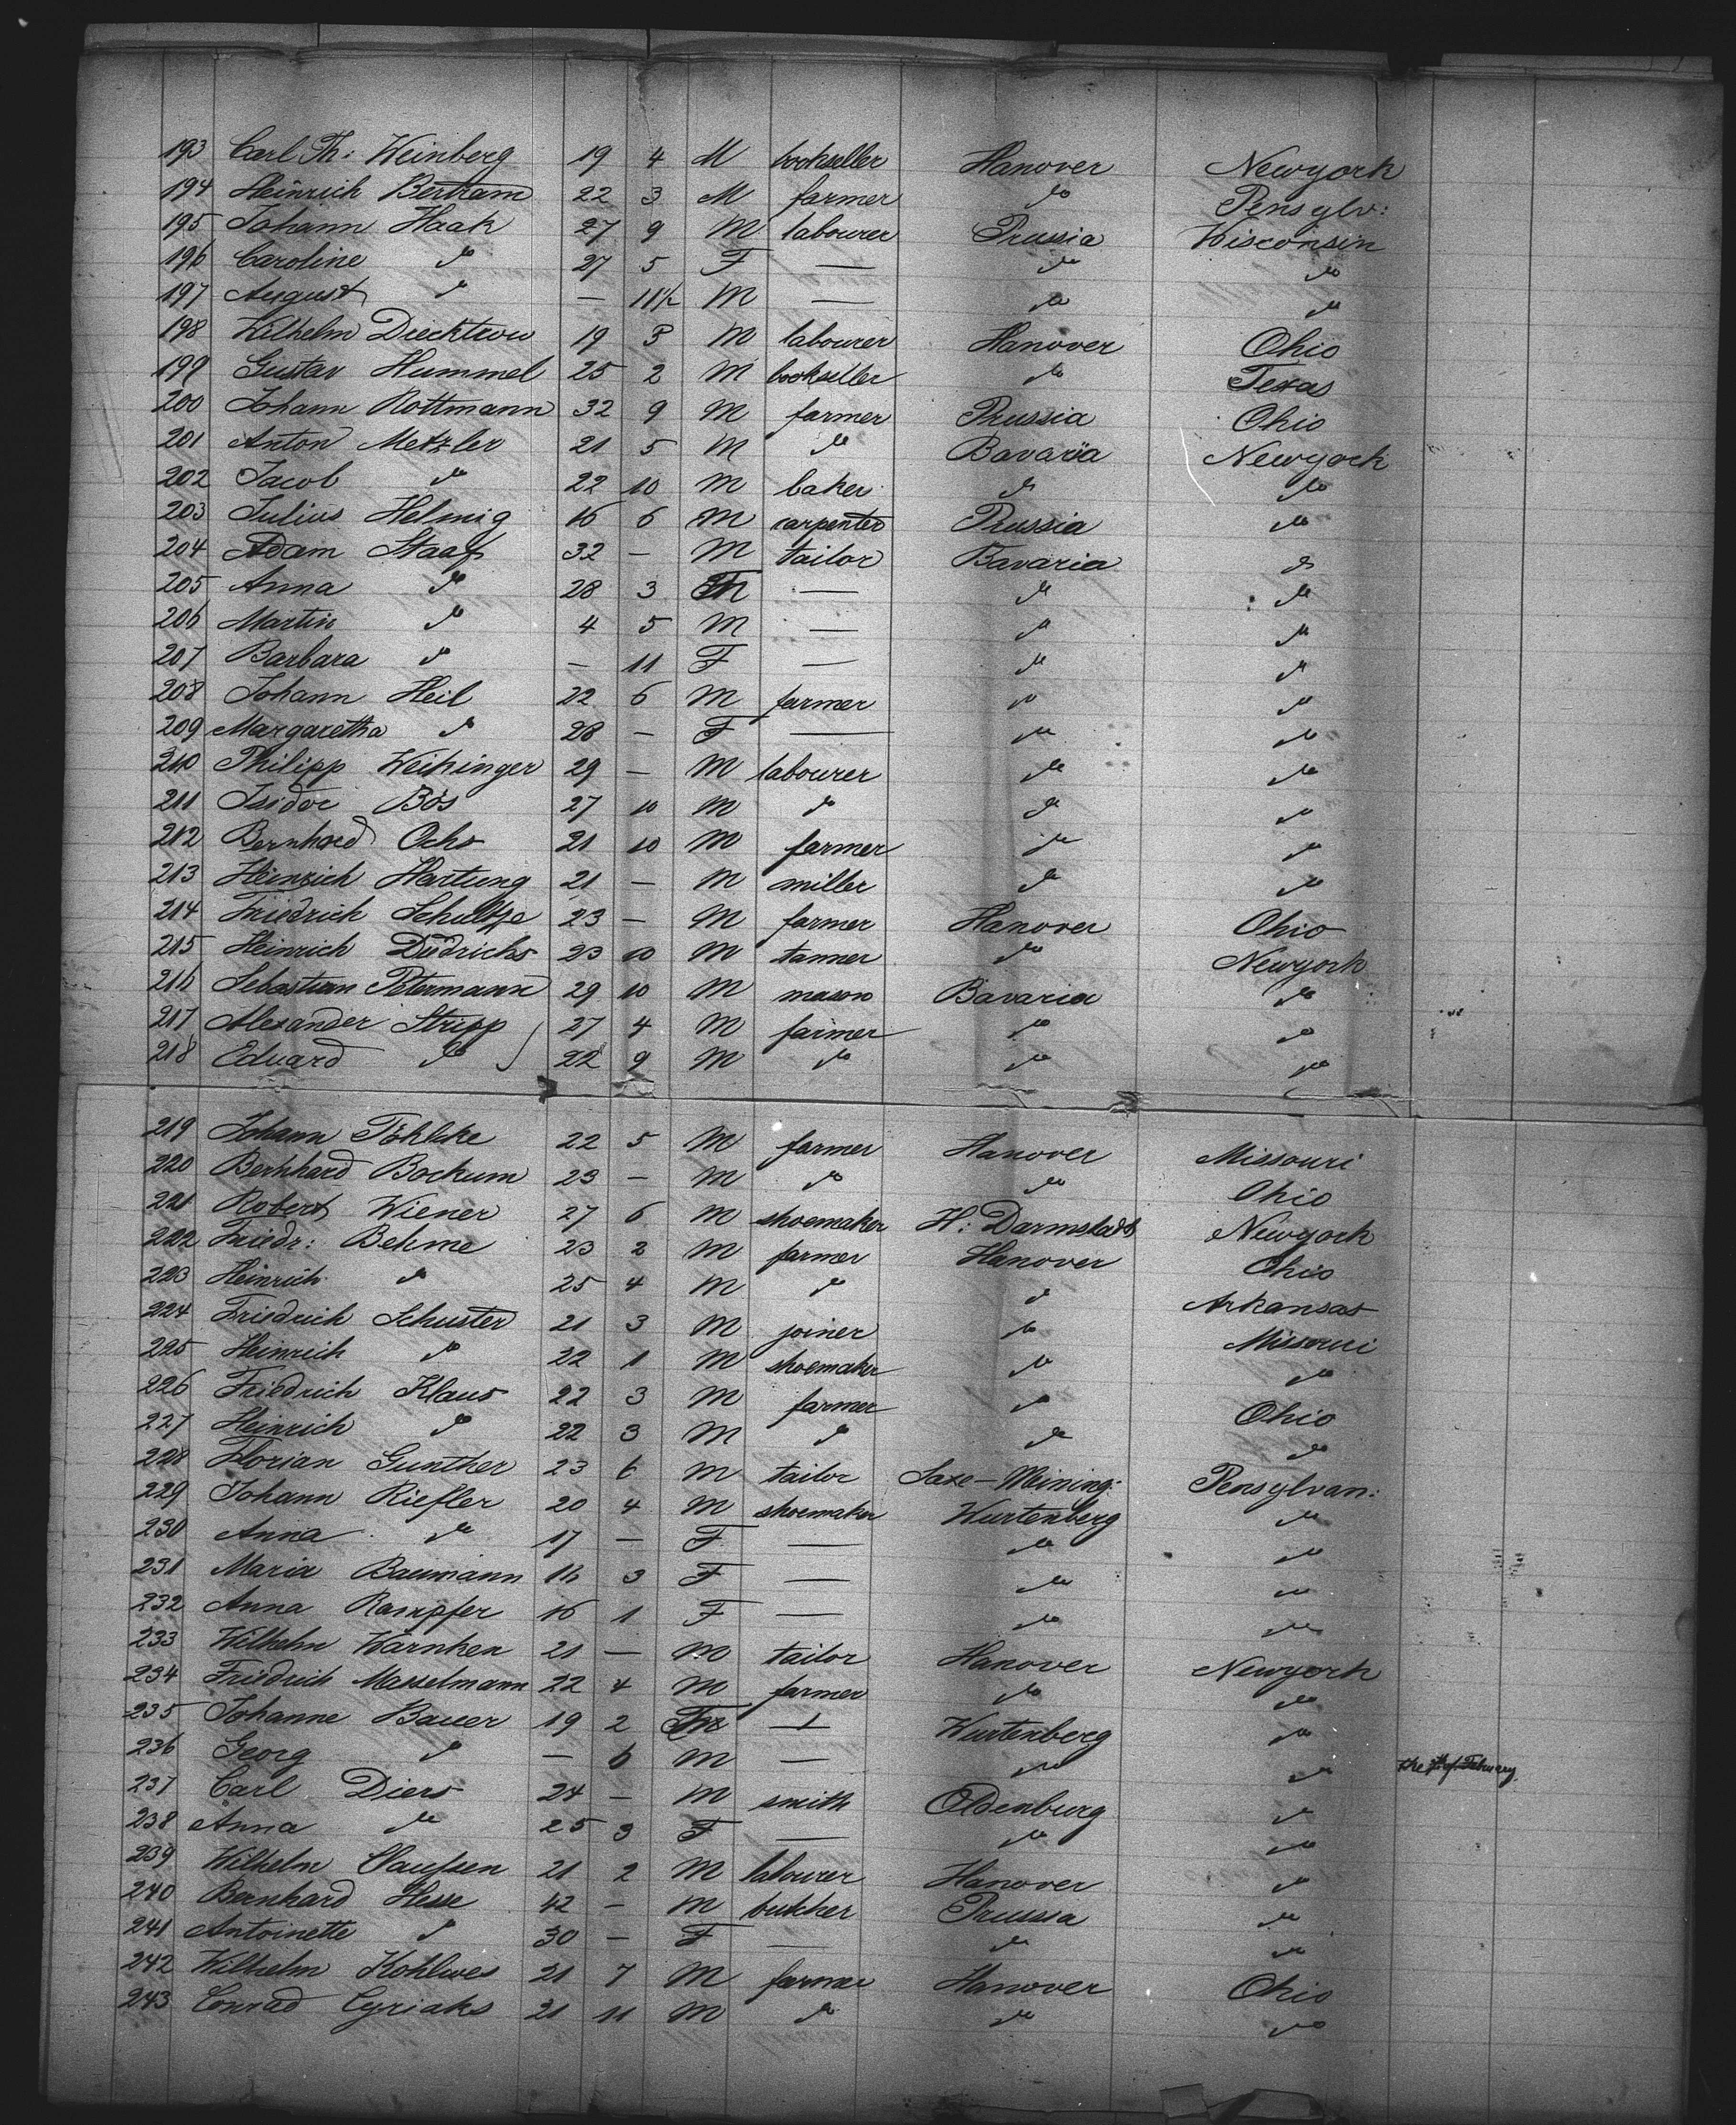 193 Carl Th: Weinberg 19 4 M bookseller Hanover Newyork
194 Heinrich Bertram 22 3 M farmer do Pensylv:
195 Johann Haak 27 9 M labourer Prussia Wisconsin
196 Caroline do 27 5 F — do do
197 August do — 11½ M — do do
198 Wilhelm 19 3 M labourer Hanover Ohio
199 Gustav Hummel 25 2 M bookseller do Texas
200 Johann Rottmann 32 9 M farmer Prussia Ohio
201 Anton Metzler 21 5 M do Bavaria Newyork
202 Jacob do 22 10 M baker do do
203 Julius Helmig 16 6 M carpenter Prussia do
204 Adam Staaf 32 — M tailor Bavaria do
205 Anna do 28 3 F — do do
206 Martin do 4 5 M — do do
207 Barbara do — 11 F — do do
208 Johann Heil 22 6 M farmer do do
209 Margaretha do 28 — F — do do
210 Philipp Weihinger 29 — M labourer do do
211 Isidor Bös 27 10 M do do do
212 Bernhard Ochs 21 10 M farmer do do
213 Heinrich Hartung 21 — M miller do do
214 Friedrich Schultze 23 — M farmer Hanover Ohio
215 Heinrich Diedrichs 23 10 M tanner do Newyork
216 Sebastian Petermann 29 10 M mason Bavaria do
217 Alexander Stripp 27 4 M farmer do do
218 Eduard do 22 9 M do do do
219 Johann Pöhlke 22 5 M farmer Hanover Missouri
220 Bernhard Bockum 23 — M do do Ohio
221 Robert Wiener 27 6 M shoemaker H: Darmstadt Newyork
222 Friedr: Behme 23 2 M farmer Hanover Ohio
223 Heinrich do 25 4 M do do Arkansas
224 Friedrich Schuster 21 3 M joiner do Missouri
225 Heinrich do 22 1 M shoemaker do do
226 Friedrich Klaus 22 3 M farmer do Ohio
227 Heinrich do 22 3 M do do do
228 Florian Gunther 23 6 M tailor Saxe-Meining: Pensylvan:
229 Johann Riefler 20 4 M shoemaker Wurtenberg do
230 Anna do 17 — F — do do
231 Maria Baumann 16 3 F — do do
232 Anna Rampfer 16 1 F — do do
233 Wilhelm Wärnken 21 — M tailor Hanover Newyork
234 Friedrich Masselmann 22 4 M farmer do do
235 Johanne Bauer 19 2 F — Wurtenberg do
236 Georg do — 6 M — do do the of February
237 Carl Diers 24 — M smith Oldenburg do
238 Anna do 25 3 F — do do
239 Wilhelm Claussen 21 2 M labourer Hanover do
240 Bernhard Hesse 42 — M butcher Prussia do
241 Antoinette do 30 — F — do do
242 Wilhelm Kohlwes 21 7 M farmer Hanover Ohio
243 Conrad Cyriaks 21 11 M do do do